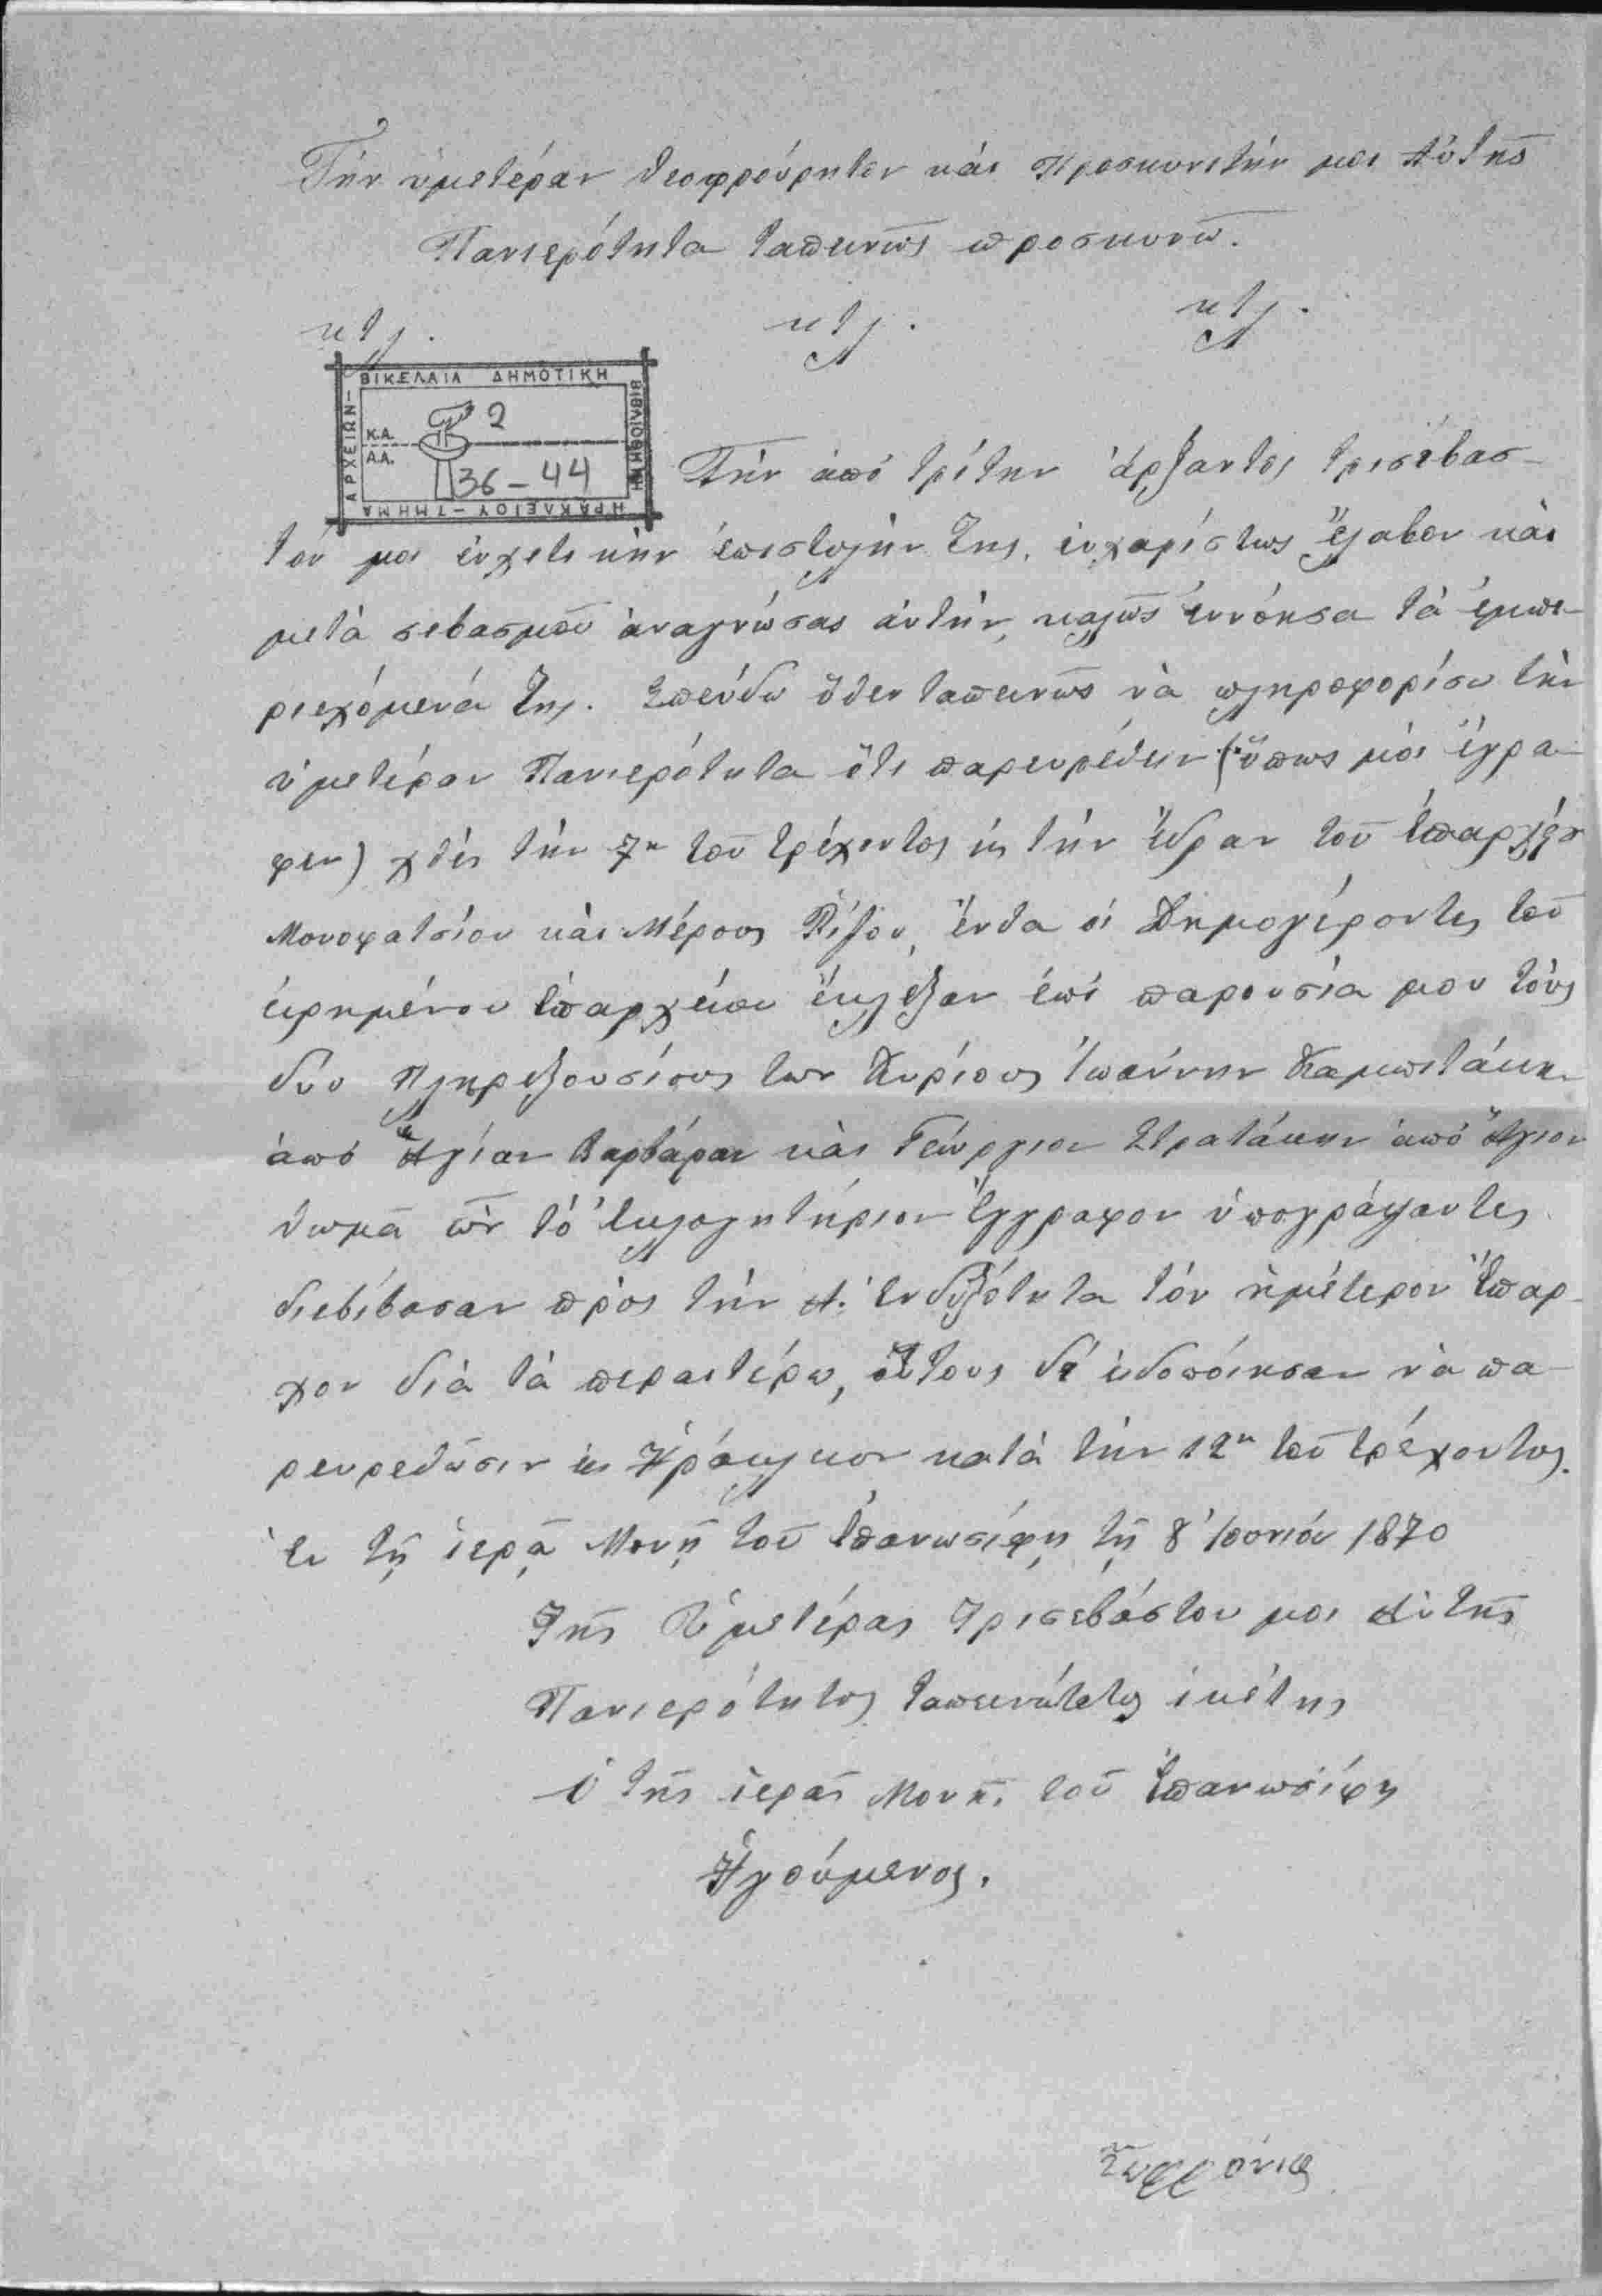 Τὴν ὑμετέραν θεοφρούρητον καὶ Προσκυνητήν μοι Αὐτῆς
Πανιερότητα ταπεινῶς προσκυνῶ.
κτλ. κτλ. κτλ.
ΒΙΚΕΛΑΙΑ ΔΗΜΟΤΙΚΗ
ΒΙΒΛΙΟΘΗΚΗ
ΗΡΑΚΛΕΙΟΥ - ΤΜΗΜΑ
ΑΡΧΕΙΩΝ -
Κ.Α. 2
Α.Α. 36 - 44
Τὴν ἀπὸ τρίτην ἄρξαντος τρισέβασ-
τόν μοι εὐχετικὴν ἐπιστολήν της, εὐχαρίστως ἔλαβον καὶ
μετὰ σεβασμοῦ ἀναγνώσας αὐτὴν, καλῶς ἐννόησα τὰ ἐμπε-
ριεχόμενά της. Σπεύδω ὅθεν ταπεινῶς νὰ πληροφορίσω τὴν
ὑμετέραν Πανιερότητα ὅτι παρευρέθην (ὅπως μοὶ ἔγρα-
φεν) χθὲς τὴν 7ην τοῦ τρέχοντος εἰς τὴν ἕδραν τοῦ Ἐπαρχείου
Μονοφατσίου καὶ Μέρους Ῥίζου, ἔνθα οἱ Δημογέροντες τοῦ
εἰρημένου Ἐπαρχείου ἔκλεξαν ἐπὶ παρουσία μου τοὺς
δύο Πληρεξουσίους των Κυρίους Ἰωάννην Καμπιτάκην
ἀπὸ Ἁγίαν Βαρβάραν καὶ Γεώργιον Στρατάκην ἀπὸ Ἅγιον
Θωμᾶ ὧν τὸ Ἐκλογητήριον Ἔγγραφον ὑπογράψαντες
διεβίβασαν πρὸς τὴν Α. Ἐνδοξότητα τὸν ἡμέτερον Ἔπαρ-
χον διὰ τὰ περαιτέρω, αὐτοὺς δὲ εἰδοποίησαν νὰ πα-
ρευρεθῶσιν εἰς Ἡράκλειον κατὰ τὴν 12ην τοῦ τρέχοντος.
Ἐν τῇ ἱερᾷ Μονῇ τοῦ Ἐπανωσίφη τῇ 8 Ἰουνίου 1870
Τῆς Ὑμετέρας Τρισεβάστου μοι Αὐτῆς
Πανιερότητος ταπεινότατος ἱκέτης
Ὁ τῆς ἱερᾶς Μονῆς τοῦ Ἐπανωσίφη
Ἡγούμενος.
Σωφρόνιος